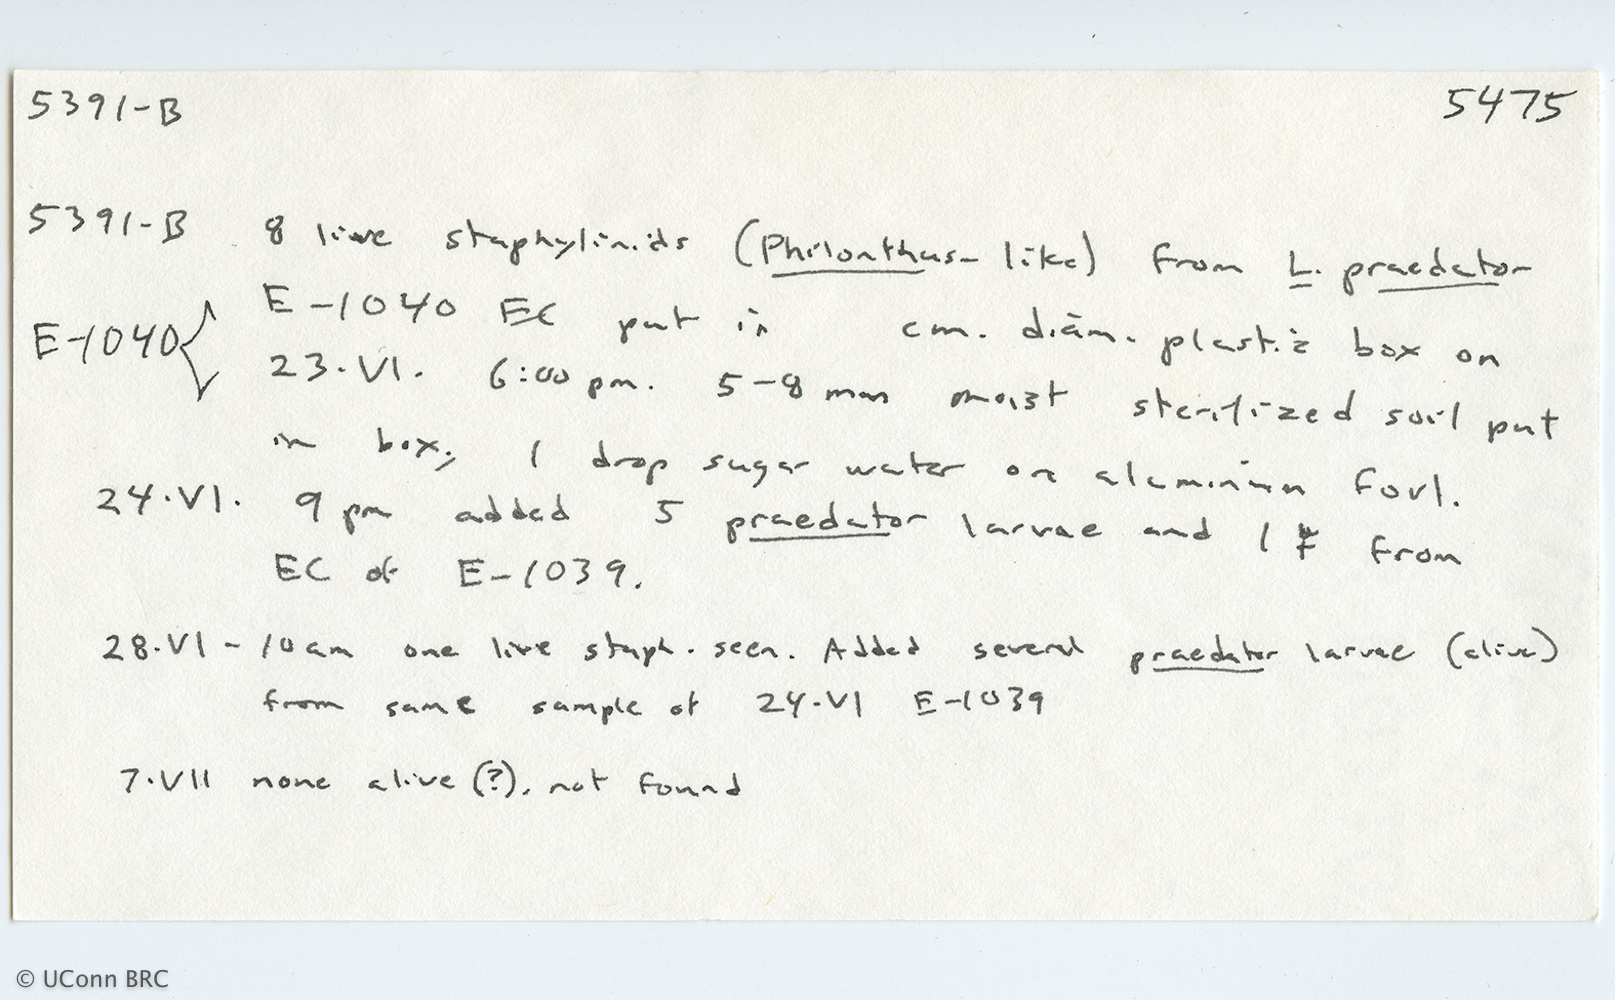 5391-B 5475
5391-B 8 live staphylinids (Philonthus-like) from L. praedator
E-1040 E-1040 EC put in cm. diam. plastic box on
23.VI. 6:00 pm. 5-8 mm moist sterilized soil put
in box; 1 drop sugar water on aluminium foil.
24.VI. 9 pm added 5 praedator larvae and 1 from
EC of E-1039.
28.VI - 10 am one live staph. seen. Added several praedator larvae (alive)
from same sample of 24.VI E-1039
7.VII none alive (?), not found
© UConn BRC